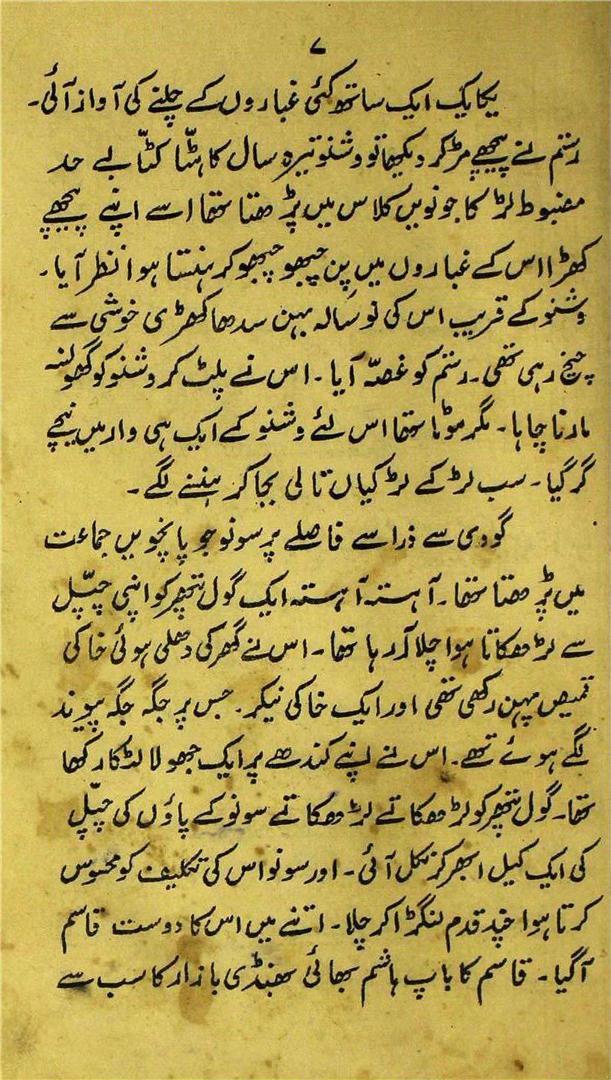 ۷
یکایک ایک ساتھ کئی غباروں کے چلنے کی آواز آئی۔
رستم نے پیچھے مڑ کر دیکھا تو وشنو تیرہ سال کا ہٹّا کٹّا بے حد
مضبوط لڑکا جو نویں کلاس میں پڑھتا تھا اسے اپنے پیچھے
کھڑا اس کے غباروں میں پِن چبھو چبھو کر ہنستا ہوا نظر آیا۔
وشنو کے قریب اس کی نو سالہ بہن سدھا کھڑی خوشی سے
چیخ رہی تھی۔ رستم کو غصّہ آیا۔ اس نے پلٹ کر وشنو کو گھونسہ
مارنا چاہا۔ مگر موٹا تھا اس لئے وشنو کے ایک ہی وار میں نیچے
گر گیا۔ سب لڑکے لڑکیاں تالی بجا کر ہنسنے لگے۔
گودی سے ذرا سے فاصلے پر سونو جو پانچویں جماعت
میں پڑھتا تھا۔ آہستہ آہستہ ایک گول پتھر کو اپنی چپّل
سے لڑھکاتا ہوا چلا آ رہا تھا۔ اس نے گھر کی دھلی ہوئی خاکی
قمیص پہن رکھی تھی اور ایک خاکی نیکر۔ جس پر جگہ جگہ پیوند
لگے ہوئے تھے۔ اس نے اپنے کندھے پر ایک جھولا لٹکا رکھا
تھا۔ گول پتھر کو لڑھکاتے لڑھکاتے سونو کے پاؤں کی چپّل
کی ایک کیل ابھر کر نکل آئی۔ اور سونو اس کی تکلیف کو محسوس
کرتا ہوا چند قدم لنگڑا کر چلا۔ اتنے میں اس کا دوست قاسم
آگیا۔ قاسم کا باپ ہاشم بھائی بھنڈی بازار کا سب سے